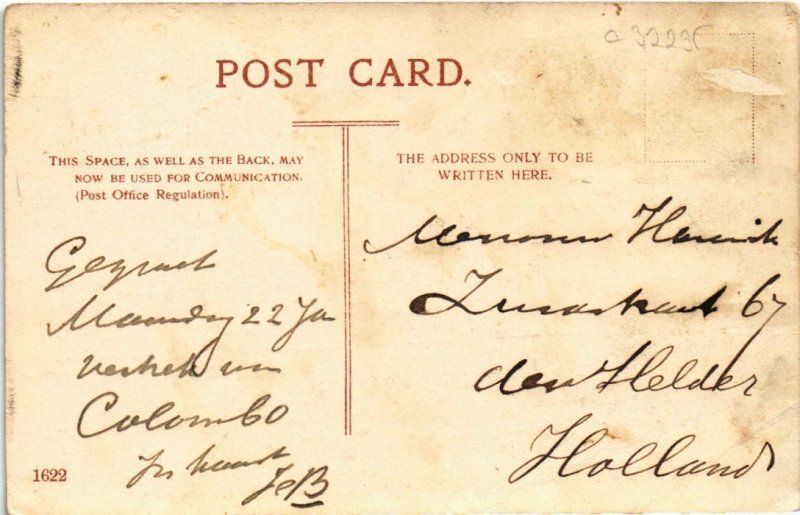 C 32295
POST CARD.
THIS SPACE, AS WELL AS THE BACK, MAY
NOW BE USED FOR COMMUNICATION.
(Post Office Regulation).
THE ADDRESS ONLY TO BE
WRITTEN HERE.
Maandag 22 Ja
vertrek van
Colombo
JeB
67
den Helder
Holland
1622